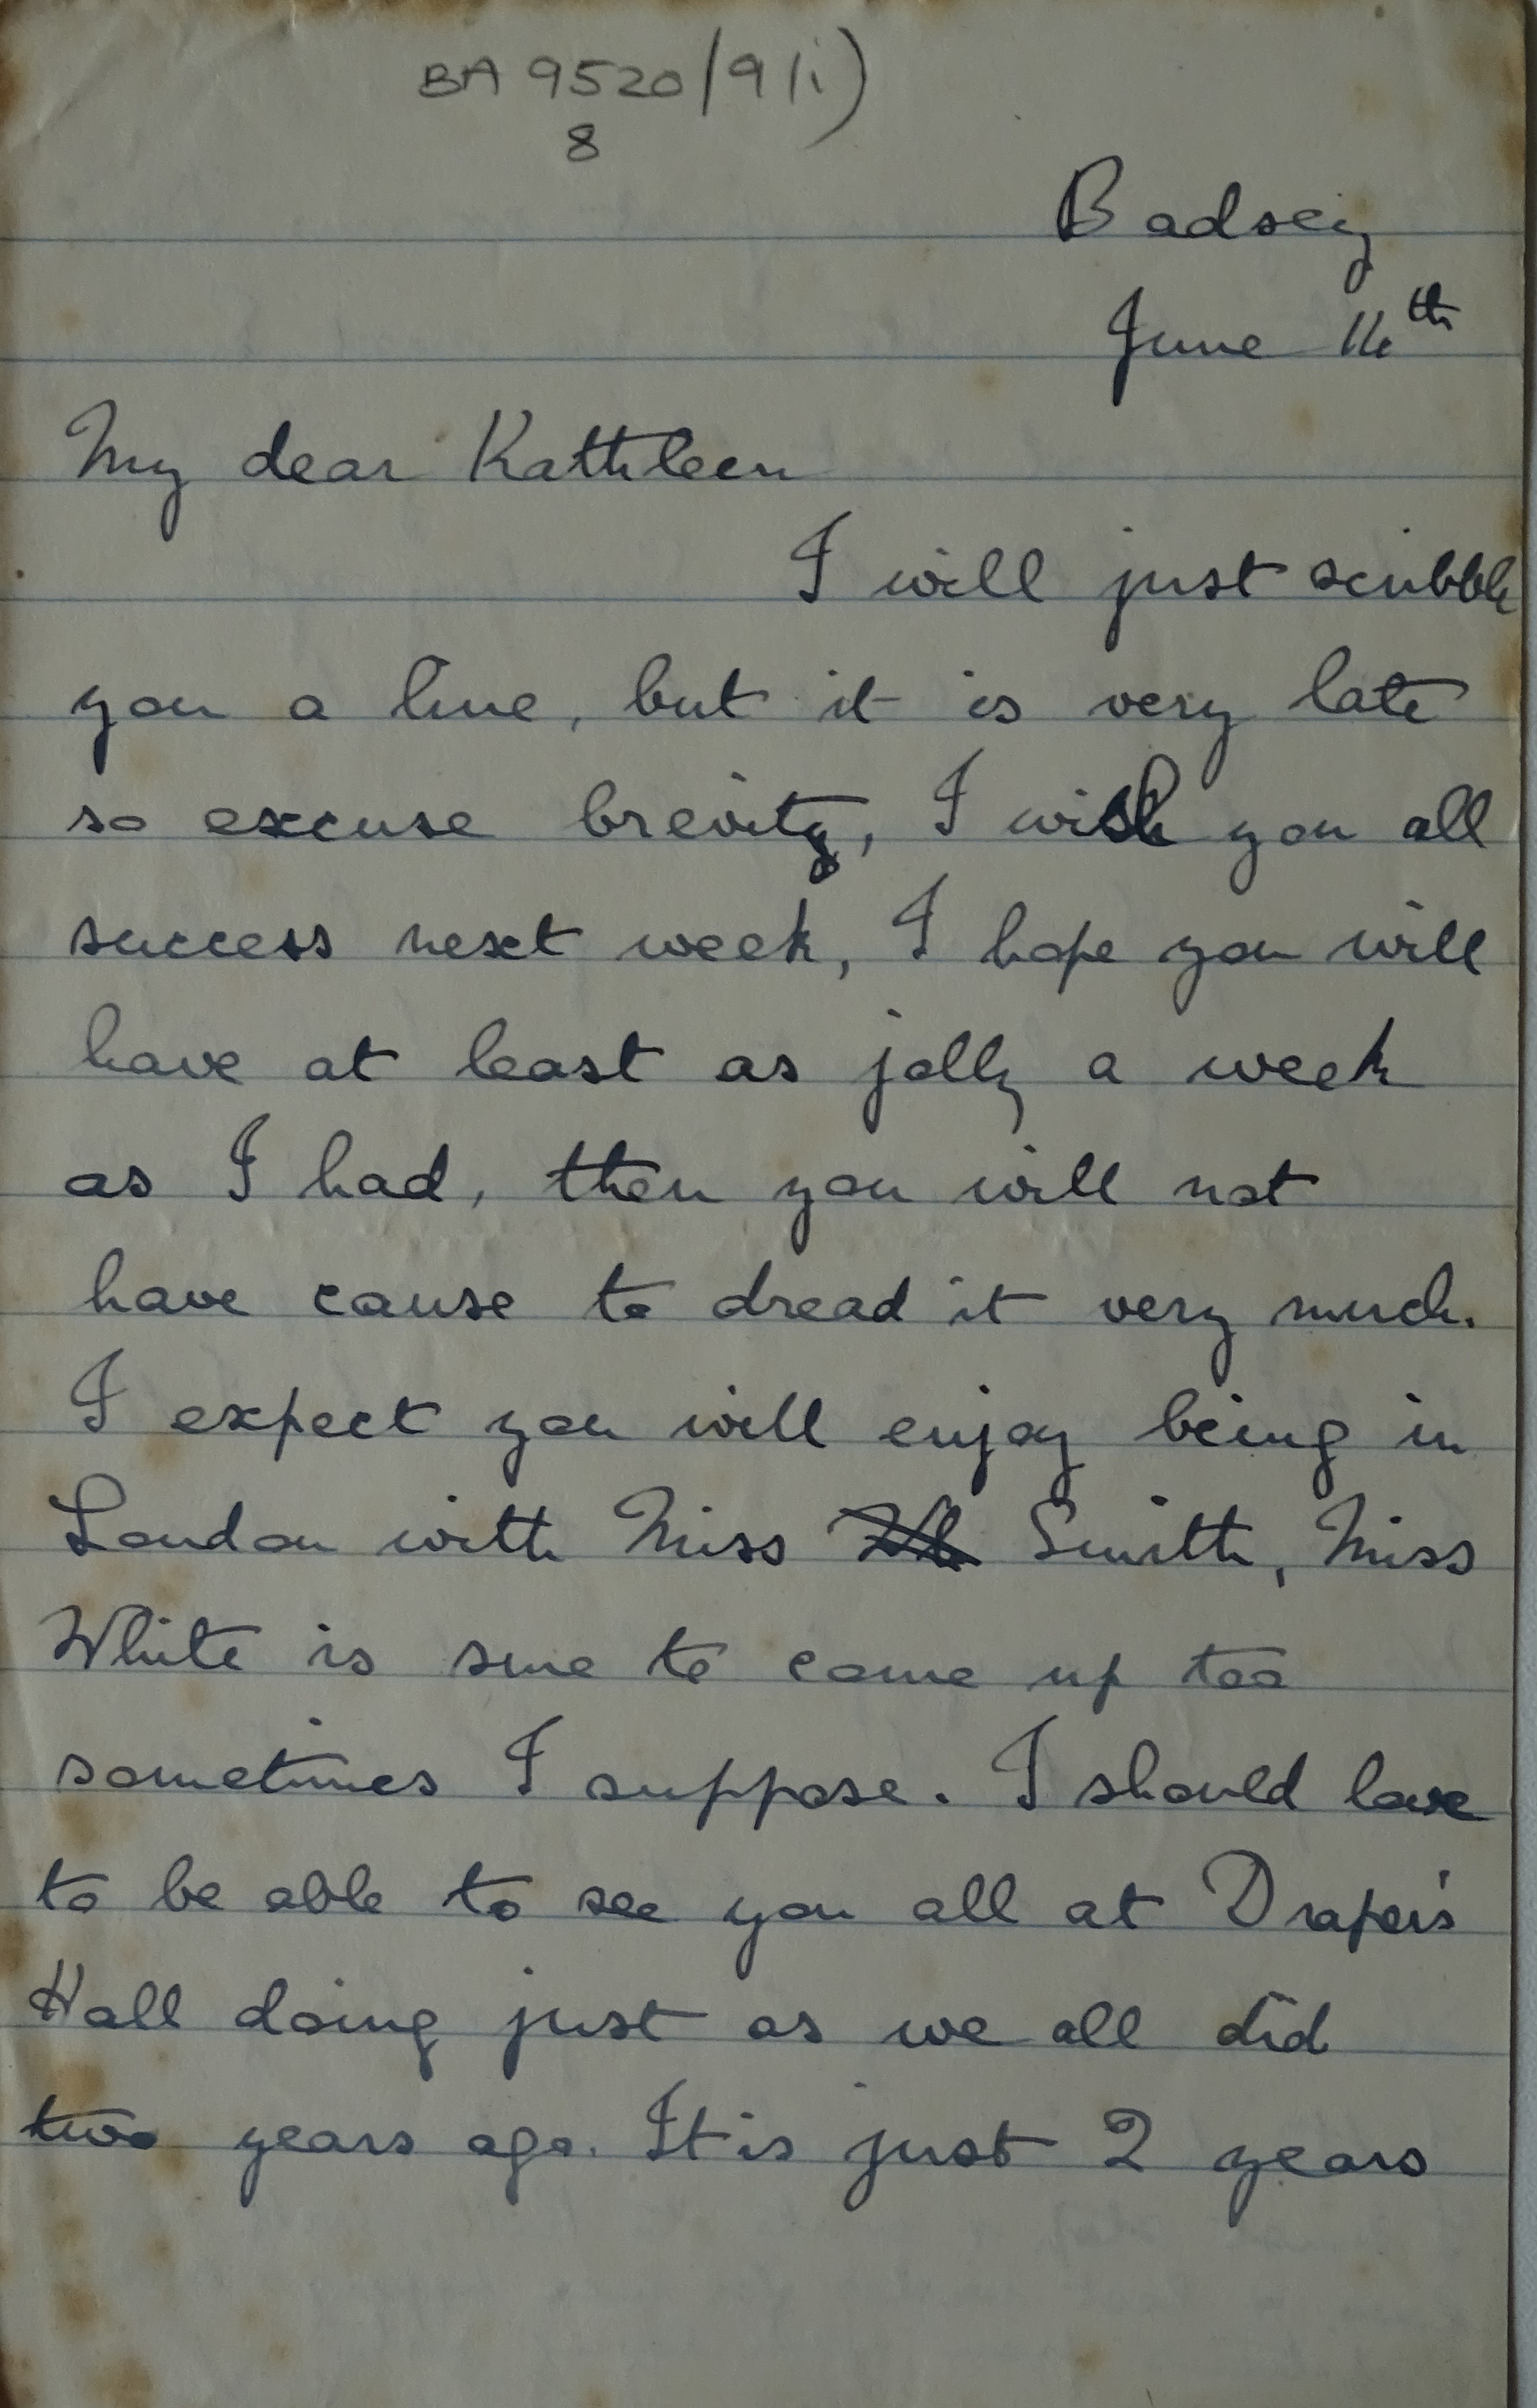 BA 9520/9(i)
8
Badsey
June 14th
My dear Kathleen
I will just scribble
you a line, but it is very late
so excuse brevity, I wish you all
success next week, I hope you will
have at least as jolly a week
as I had, then you will not
have cause to dread it very much.
I expect you will enjoy being in
London with Miss Smith, Miss
White is sure to come up too
sometimes I suppose. I should love
to be able to see you all at Draper's
Hall doing just as we all did
two years ago. It is just 2 years